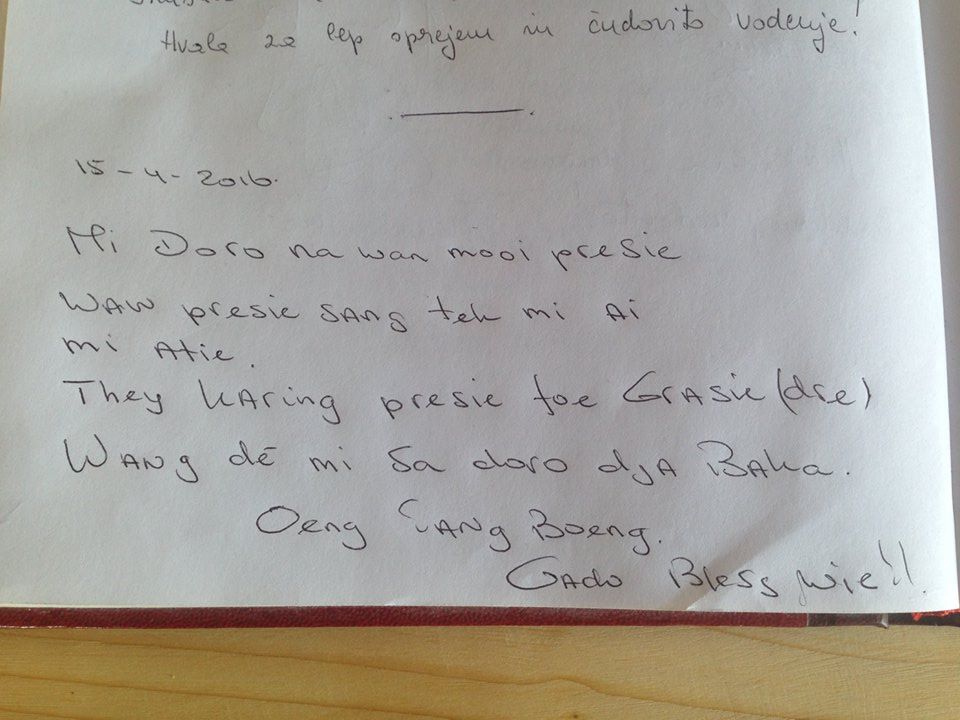 Hvala za lep sprejem in čudovito vodenje!
15-4-2016.
Mi Doro na wan mooi presie
WAW presie SANG tek mi Ai
mi Atie.
They KAring presie foe GrASie (dre)
WANg dé mi Sa doro djA BAka.
Oeng TANg Boeng.
GAdo Bless wie!!